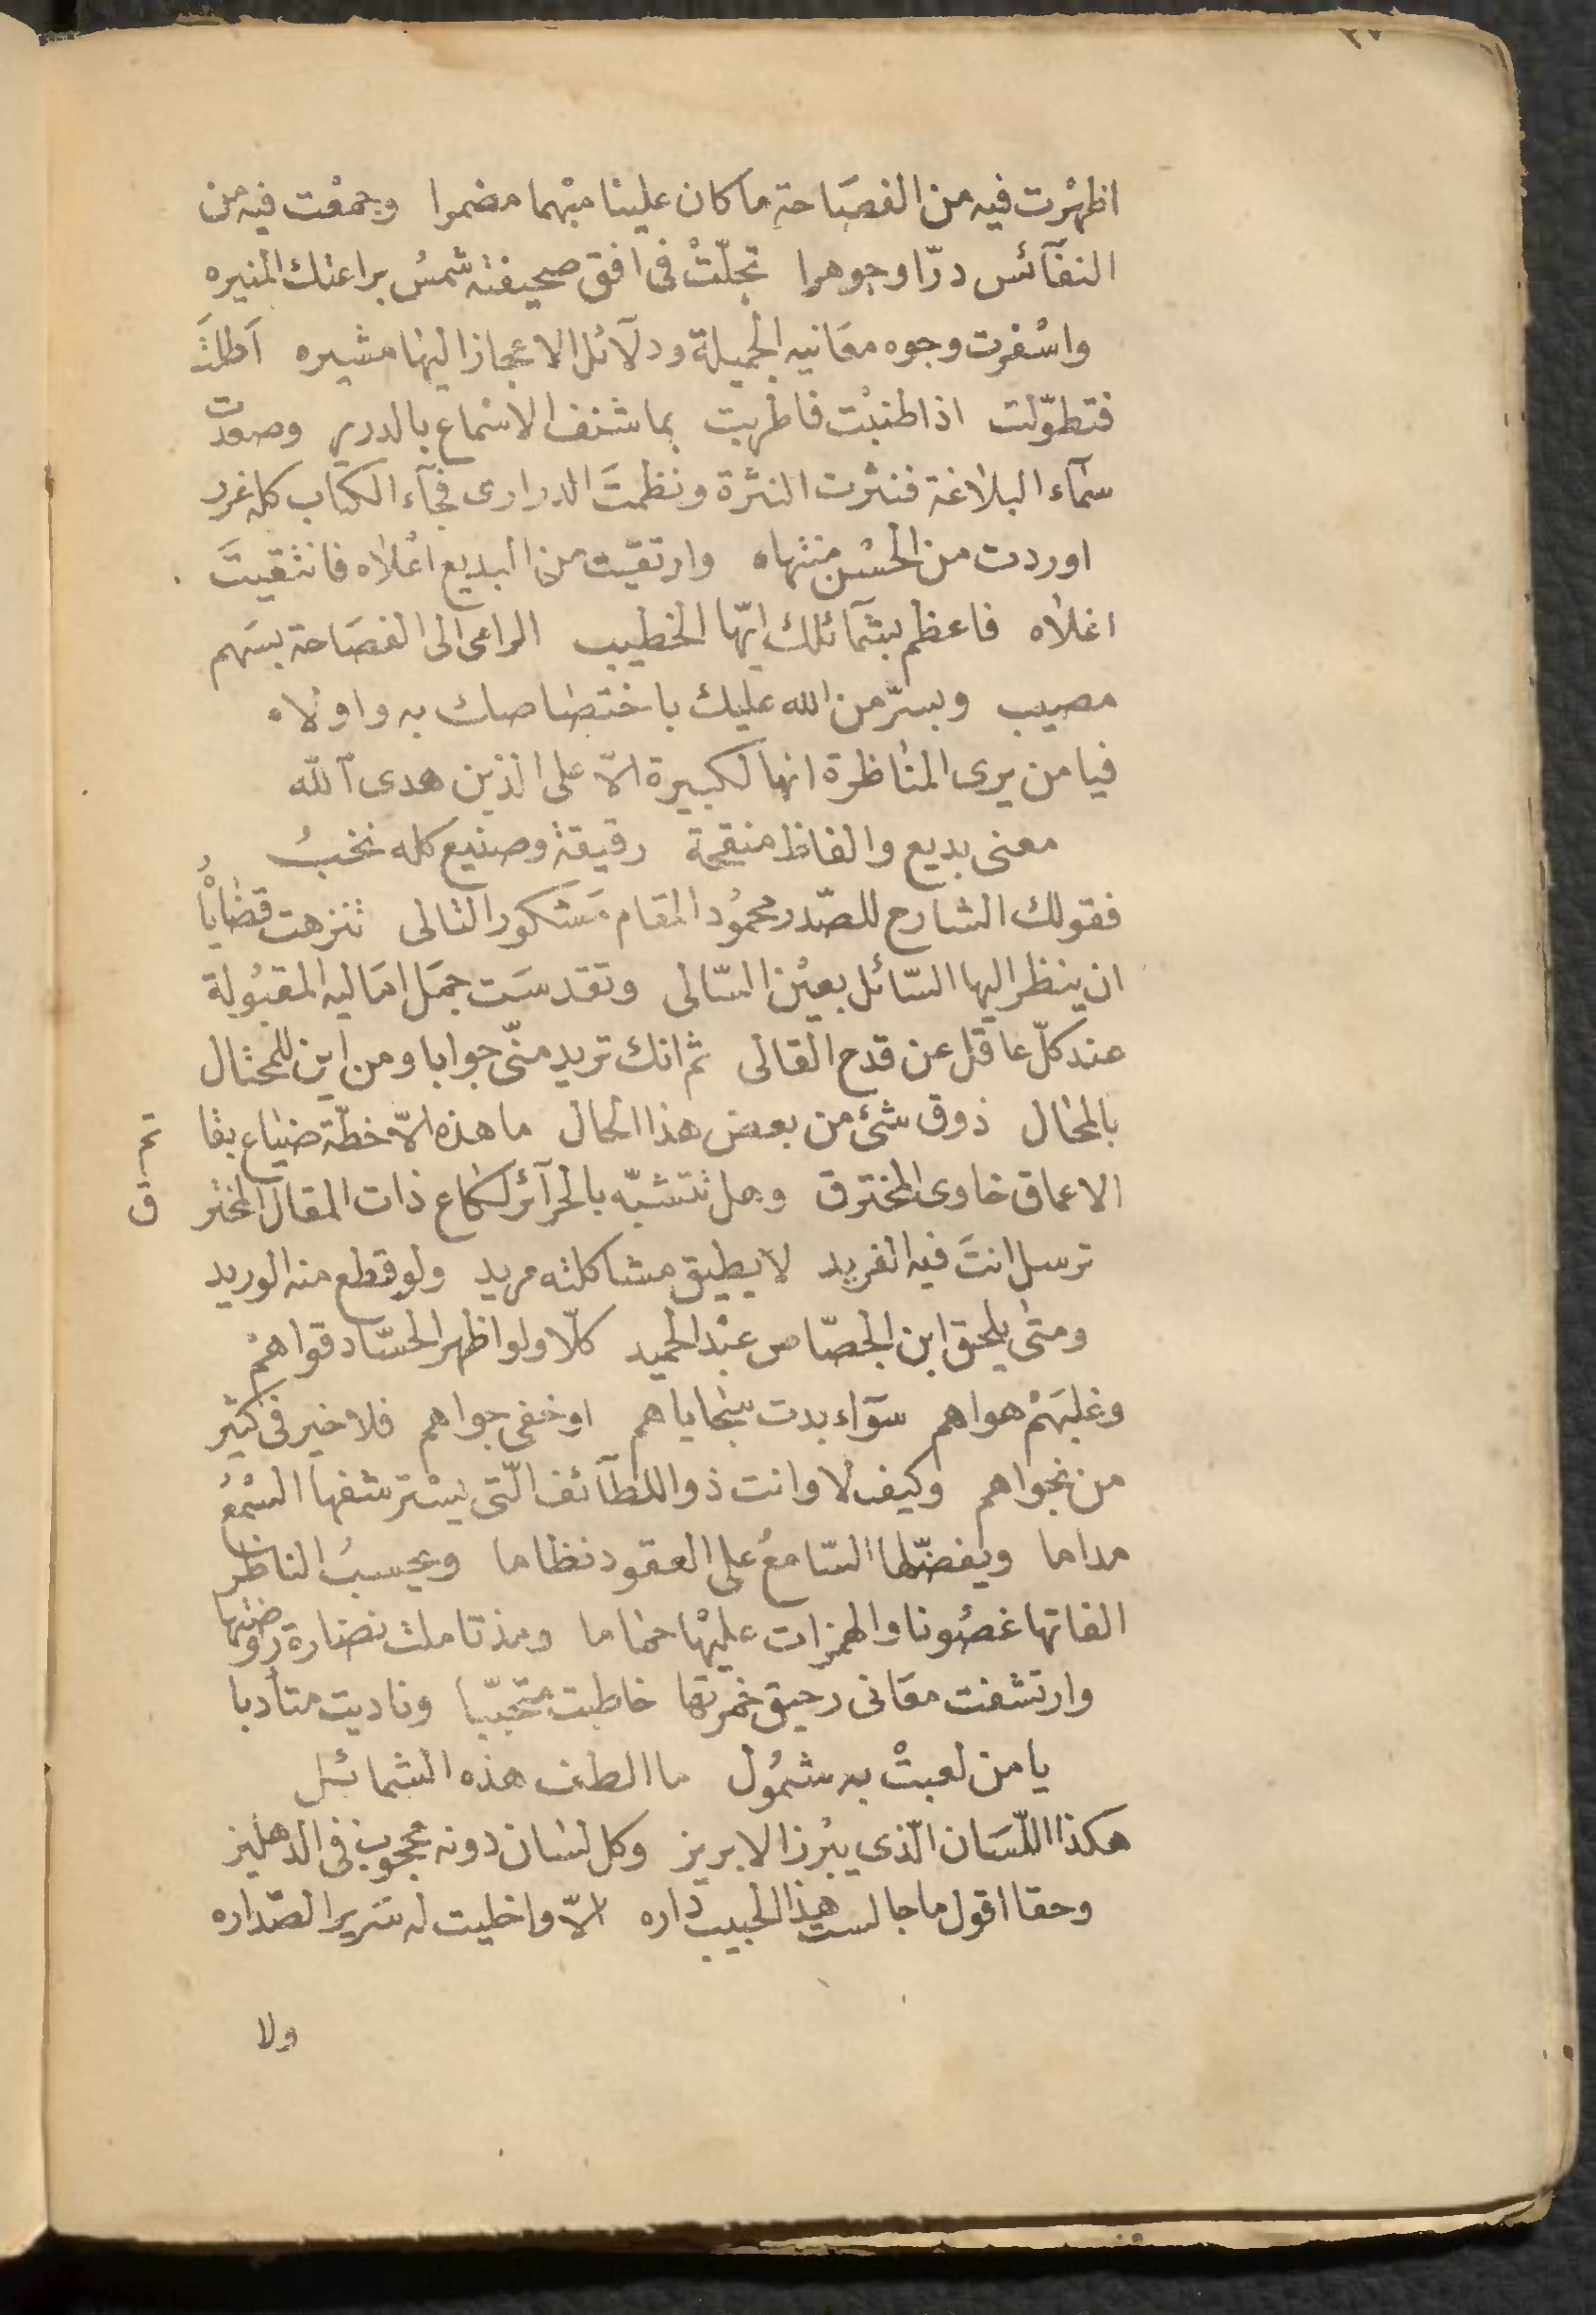 ٢٧
اظهرت فيه من الفصَاحة ما كان علينا مبهما مضمرا وجمعْت فيه من
النفآئس درّا وجوهرا تجلّتْ فى افق صحيفته شمسُ براعتك المنيره
واسْفرت وجوه معَانيه الجميلة ودلآئل الاعجاز اليها مشيره اَطلتَ
فتطوّلت اذ اطنبْت فاطربت بما شنف الاسْماع بالدرر وصعدت
سمآء البلاغة فنثرت النثرة ونظمتَ الدرارى فجآء الكتاب كله غرر
اوردت من الحُسْن منتهاه وارتقيت من البديع اعْلاه فانتقيتَ
اغلاه فاعظم بشمآئلك ايّها الخطيب الراعى الى الفصَاحة بسَهم
مصيب وبسرّ من الله عليك باختصاصك به واولاه
فيا من يرى المناظرة انها لكبيرة الّا على الذين هدى الله
معنى بديع والفاظ منقحة رقيقة وصنيع كله نخبُ
فقولك الشارح للصّدر محمُود المقام مَشكور التالى تنزهت قضاياُه
ان ينظر اليها السّائل بعيْن السّالى وتقدسَت جمَل امَاليه المقبُولة
عند كلّ عاقل عن قدح القالى ثم انك تريد منّى جوابا ومن اين للمحتال
بالمحَال ذوق شئ من بعض هذا الحال ما هذه الّا خطّة ضياع بقا تم
الاعماق خاوى المخترق وهل تتشبّه بالحرآئر لكاع ذات المقال المختر ق
ترسل انتَ فيه الفريد لا يطيق مشاكلته مريد ولو قطع منه الوريد
ومتى يلحق ابن الجصّاص عبْد الحميد كلّا ولو اظهر الحسّاد قواهمْ
وغلبَهمْ هواهم سوَآء بدت سجَاياهم او خفى جواهم فلا خير فى كثير
من نجواهم وكيف لا وانت ذو اللطآئف الّتى يسْترشفها السّمْعُ
مداما ويفضّلها السّامعُ على العقود نظاما ويحسبُ الناظر
الفاتها غصُونا والهمزات عليْها حمَاما ومذ تاملت نضارة روضتها
وارتشفت معَانى رحيق خمرتها خاطبت متحببّا وناديت متأدبا
يا من لعبتْ به شمُول ما الطف هذه الشمائل
هكذا اللّسَان الّذى يبْرز الابريز وكل لسَان دونه محجوب فى الدهليز
وحقا اقول ما جالست هذا الحبيب داره الّا واخليت له سَرير الصّداره
ولا